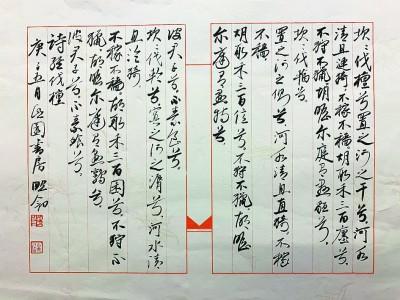 坎々伐檀兮置之河之干兮河水
清且涟猗不稼不穑胡取禾三百廛兮
不狩不猎胡瞻尔庭有县貆兮
坎々伐辐兮
置之河之侧兮河水清且直猗不稼
不穑
胡取禾三百亿兮不狩不猎胡瞻
尔庭有县特兮
彼君子兮不素食兮
坎々伐轮兮寘之河之漘兮河水清
且沦猗
不稼不穑胡取禾三百囷兮不狩不
猎胡瞻尔庭有县鹑兮
彼君子兮不素飧兮
詩經伐檀
庚子五月書房